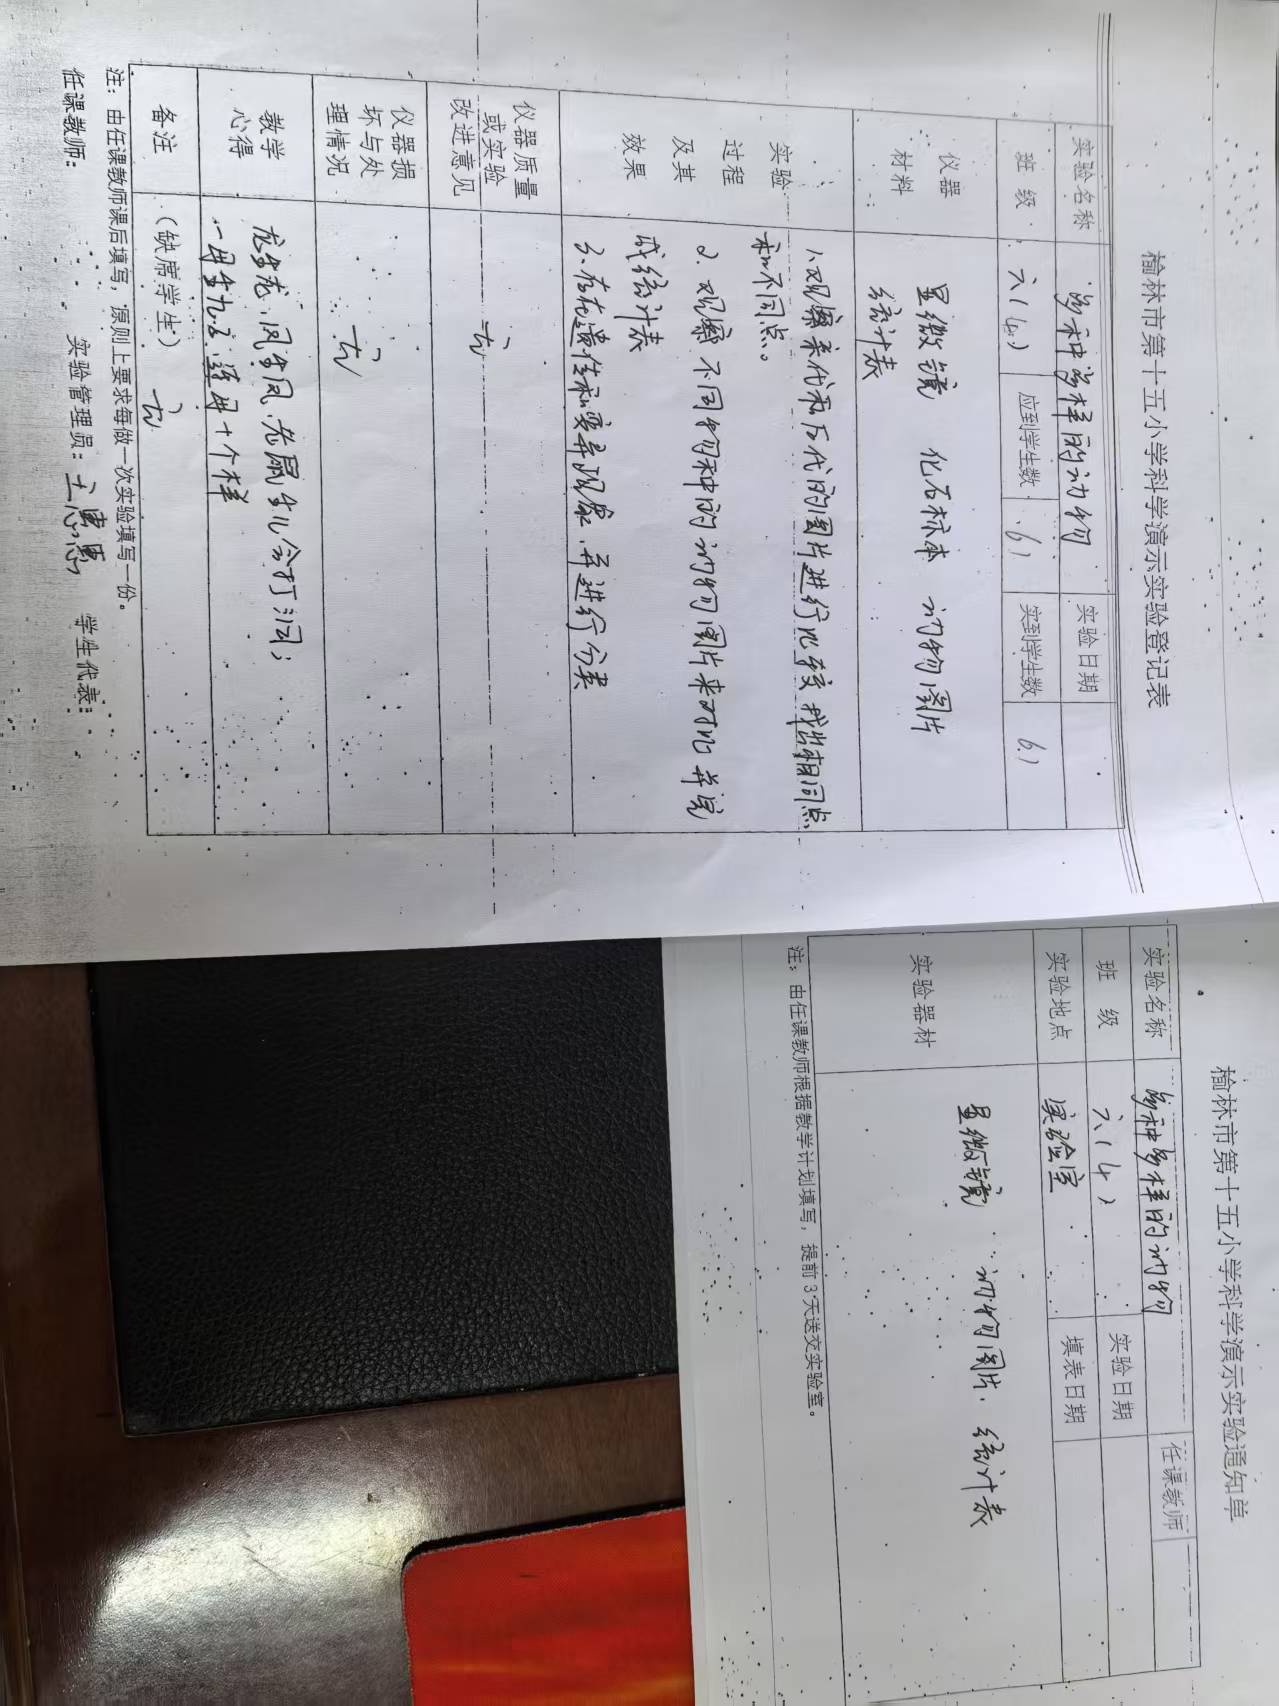 榆林市第十五小学科学演示实验登记表
实验名称 多种多样的动物 实验日期
班 级 六(4) 应到学生数 61 实到学生数 61
仪器
材料
显微镜 化石标本 动物图片
统计表
实验
过程
及其
效果
1、观察亲代和后代的图片进行比较 找出相同点
和不同点。
2、观察不同物种的动物图片来对比 并完
成统计表
3、存在遗传和变异现象,并进行分类
仪器质量
或实验
改进意见
无
仪器损
坏与处
理情况
无
教学
心得
龙生龙,凤生凤,老鼠生儿会打洞;
一母生九子,连母十个样
备注 (缺席学生) 无
注:由任课教师课后填写,原则上要求每做一次实验填写一份。
任课教师: 实验管理员: 学生代表:
榆林市第十五小学科学演示实验通知单
实验名称 多种多样的动物 任课教师
班 级 六(4) 实验日期
实验地点 实验室 填表日期
实验器材
显微镜 动物图片 统计表
注:由任课教师根据教学计划填写,提前3天送交实验室。